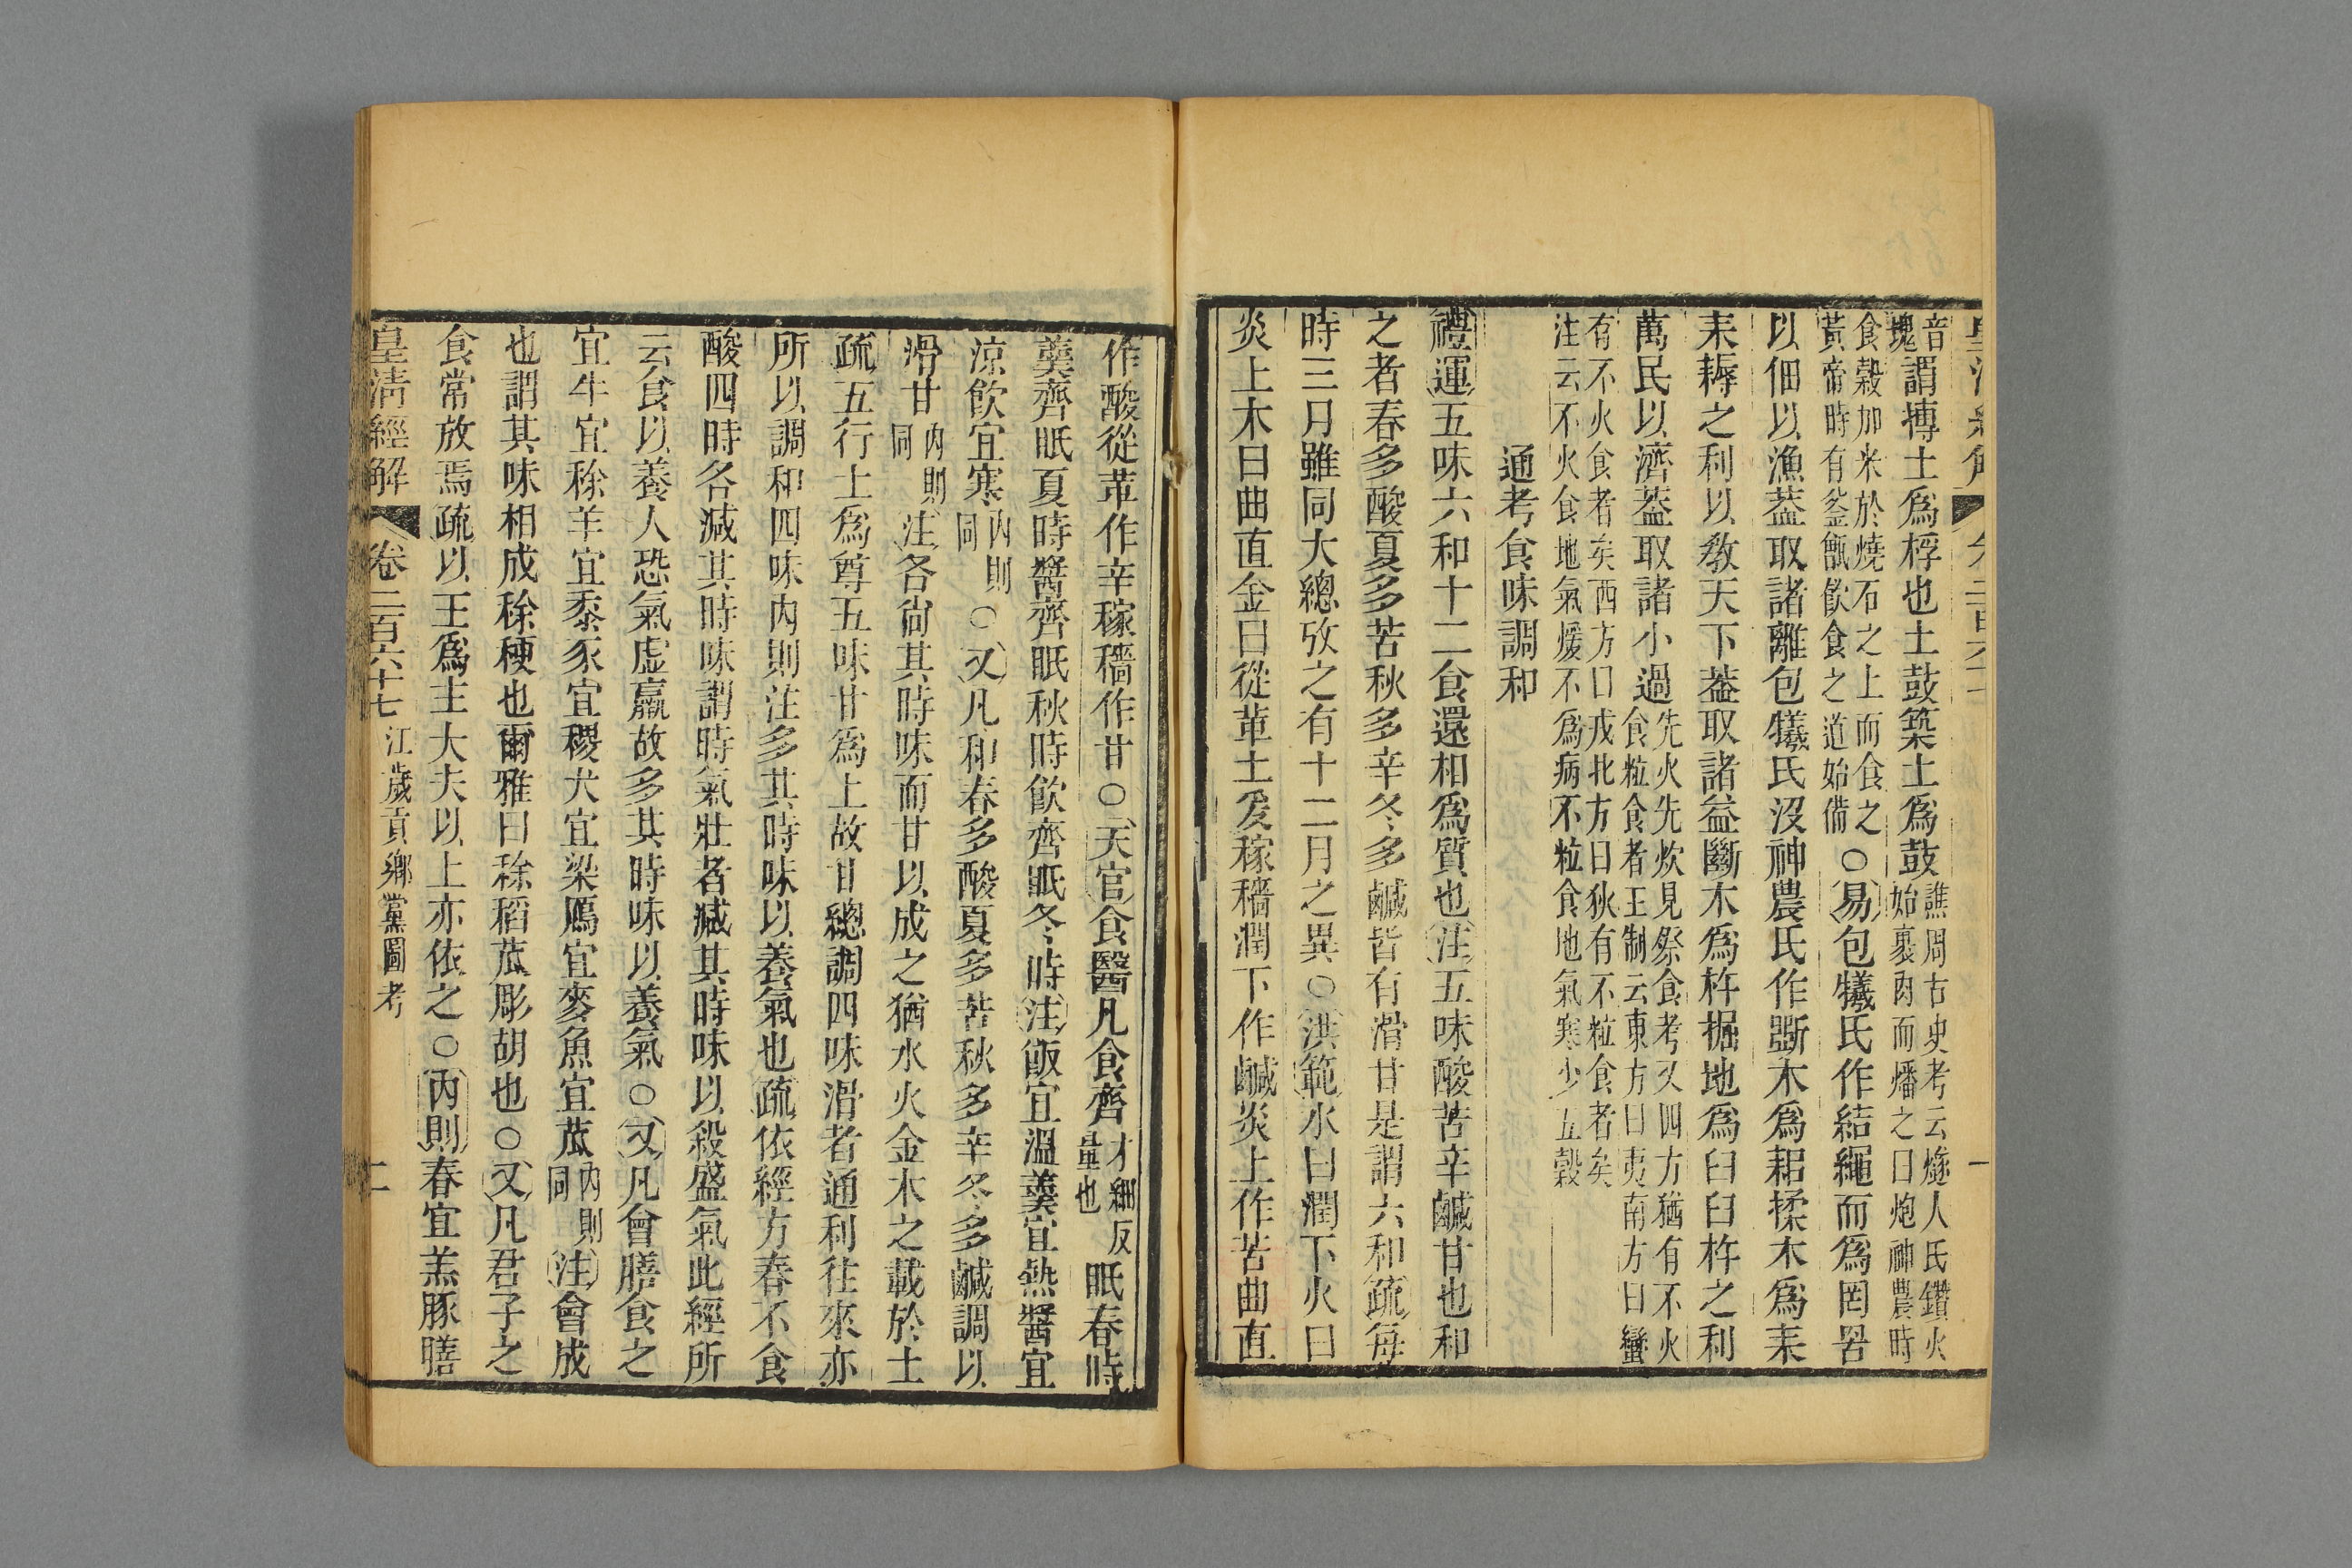 音塊謂摶土爲桴也土鼓築土爲鼓譙周古史考云燧人氏鑽火始裹肉而燔之曰炮神農時
食穀加米於燒石之上而食之黃帝時有釜甑飲食之道始備○易包犧氏作結繩而爲罔罟
以佃以漁蓋取諸離包犧氏沒神農氏作斲木爲耜揉木爲耒
耒耨之利以敎天下葢取諸益斷木爲杵掘地爲臼臼杵之利
萬民以濟葢取諸小過先火先炊見祭食考又四方猶有不火食粒食者王制云東方曰夷南方曰蠻
有不火食者矣西方曰戎北方曰狄有不粒食者矣注云不火食地氣煖不爲病不粒食地氣寒少五穀
通考食味調和
禮運五味六和十二食還相爲質也注五味酸苦辛鹹甘也和
之者春多酸夏多苦秋多辛冬多鹹皆有滑甘是謂六和疏每
時三月雖同大總攷之有十二月之異○洪範水曰潤下火曰
炎上木曰曲直金曰從革土爰稼穡潤下作鹹炎上作苦曲直
作酸從革作辛稼穡作甘○天官食醫凡食齊才細反量也眂春時
羹齊眂夏時醬齊眂秋時飮齊眂冬時注飯宜溫羹宜熱醬宜
涼飮宜寒內則同○又凡和春多酸夏多苦秋多辛冬多鹹調以
滑甘內則同注各尙其時味而甘以成之猶水火金木之載於土
疏五行土爲尊五味甘爲上故甘總調四味滑者通利往來亦
所以調和四味內則注多其時味以養氣也疏依經方春不食
酸四時各減其時味謂時氣壯者減其時味以殺盛氣此經所
云食以養人恐氣虛羸故多其時味以養氣○又凡會膳食之
宜牛宜稌羊宜黍豕宜稷犬宜粱鴈宜麥魚宜苽內則同注會成
也謂其味相成稌稉也爾雅曰稌稻苽彫胡也○又凡君子之
食常放焉疏以王爲主大夫以上亦依之○內則春宜羔豚膳
皇淸經解 卷二百六十七 江歲貢鄉黨圖考 二